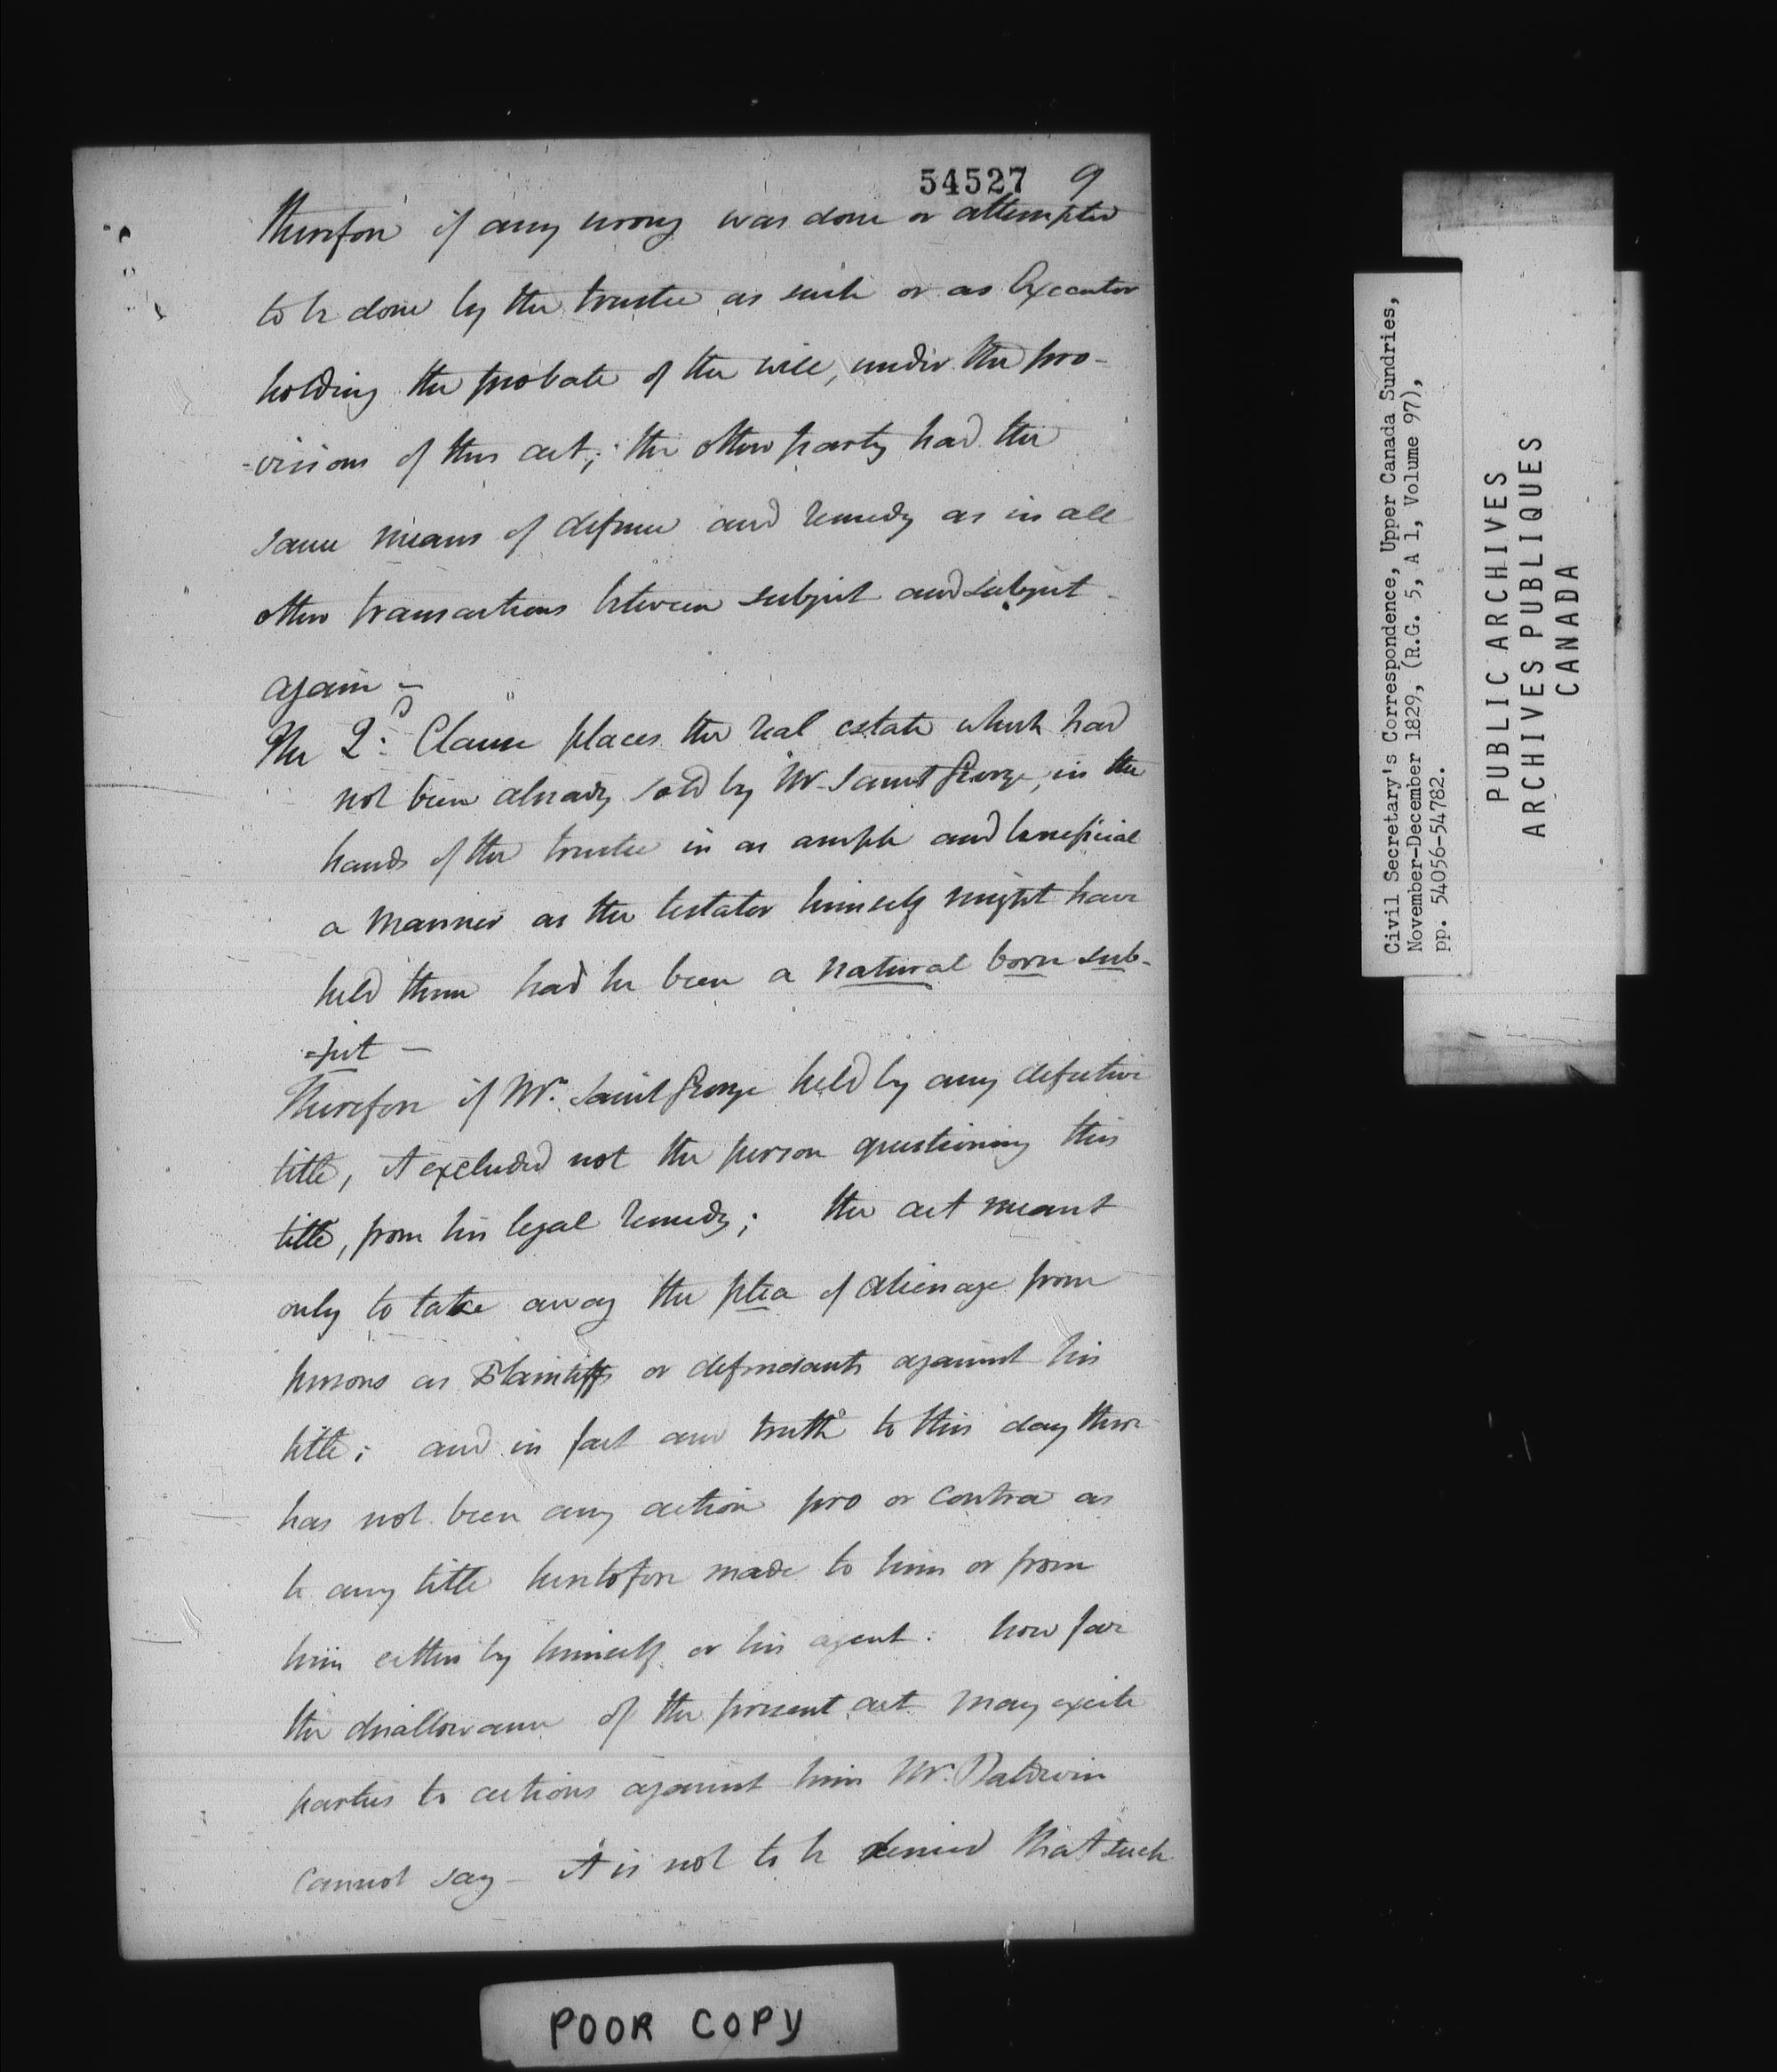 54527 9
Therefore if any wrong was done or attempted
to be done by the trustee as such or as Executor
holding the probate of the will, under the pro-
=visions of this act; the other party had the
same means of defence and remedy as in all
other transactions between subject and subject -
again -
The 2d Clause places the real estate which had
not been already sold by Mr. Saint George, in the
hands of the trustee in as ample and beneficial
a manner as the testator himself might have
held them had he been a natural born sub-
=ject -
Therefore if Mr. Saint George held by any defective
title, it excluded not the person questioning this
title, from his legal remedy; the act meant
only to take away the plea of alienage from
persons as Plaintiffs or defendants against his
title; and in fact and truth to this day there
has not been any action pro or contra as
to any title heretofore made to him or from
him either by himself or his agent: how far
the disallowance of the present act may excite
parties to actions against him Mr. Baldwin
cannot say - it is not to be denied that such
POOR COPY
Civil Secretary's Correspondence, Upper Canada Sundries,
November-December 1829, (R.G. 5, A 1, Volume 97),
pp. 54056-54782.
PUBLIC ARCHIVES
ARCHIVES PUBLIQUES
CANADA